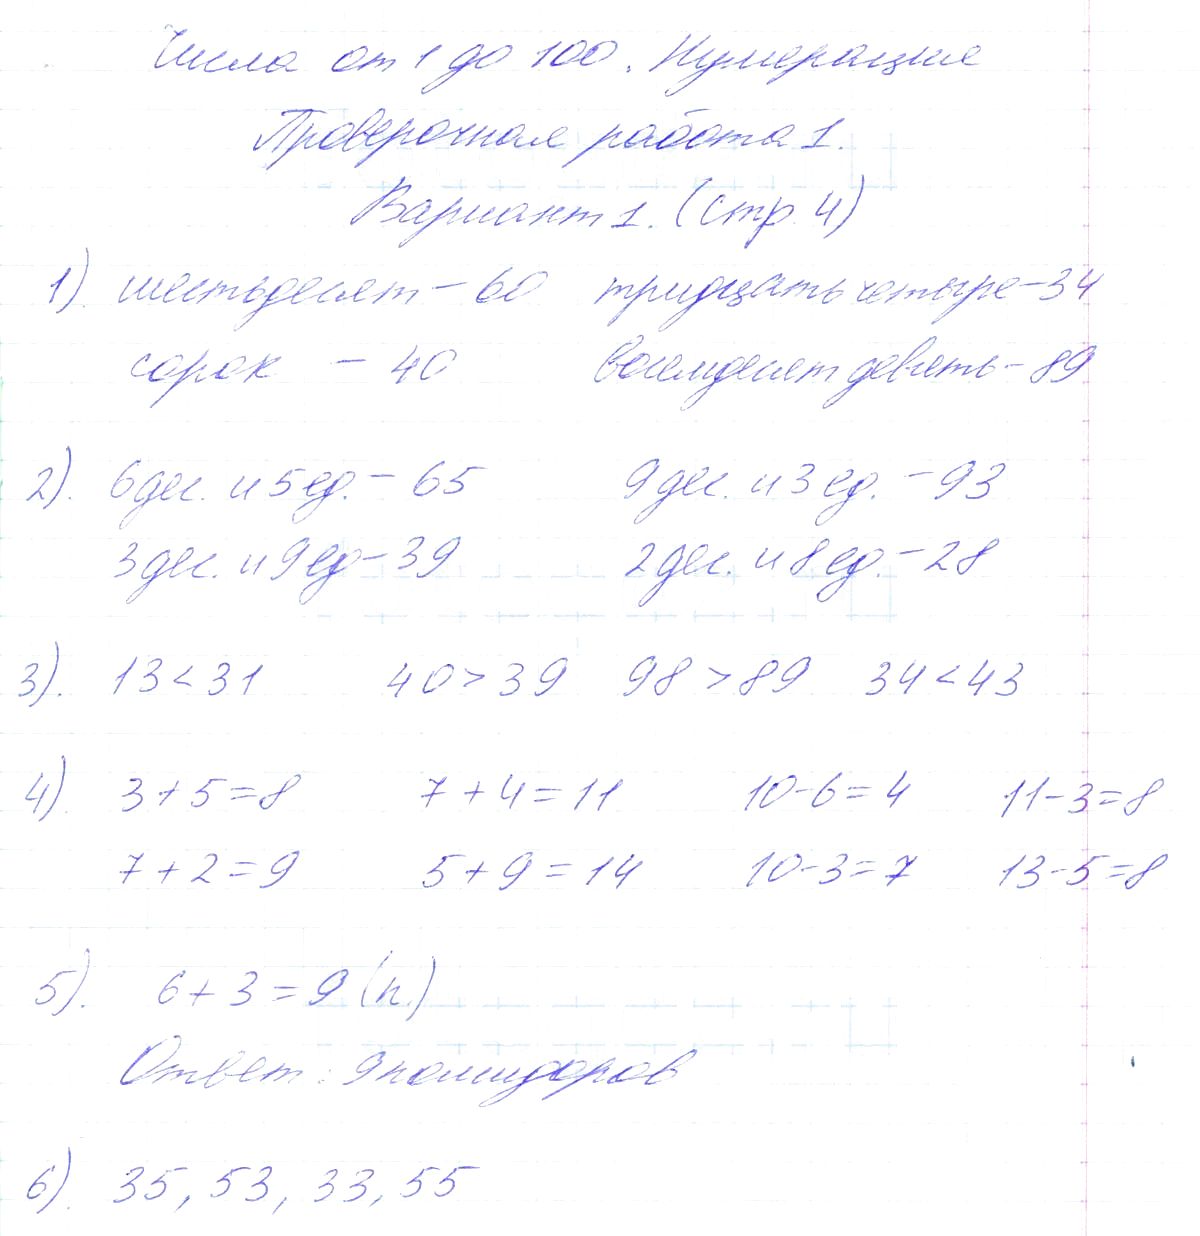 Числа от 1 до 100. Нумерация
Проверочная работа 1.
Вариант 1. (стр. 4)
1). шестьдесят - 60 тридцать четыре - 34
сорок - 40 восемдесят девять - 89
2). 6 дес. и 5 ед. - 65 9 дес. и 3 ед. - 93
3 дес. и 9 ед - 39 2 дес. и 8 ед. - 28
3). 13 < 31 40 > 39 98 > 89 34 < 43
4). 3 + 5 = 8 7 + 4 = 11 10 - 6 = 4 11 - 3 = 8
7 + 2 = 9 5 + 9 = 14 10 - 3 = 7 13 - 5 = 8
5). 6 + 3 = 9 (п.)
Ответ: 9 помидоров
6). 35, 53, 33, 55